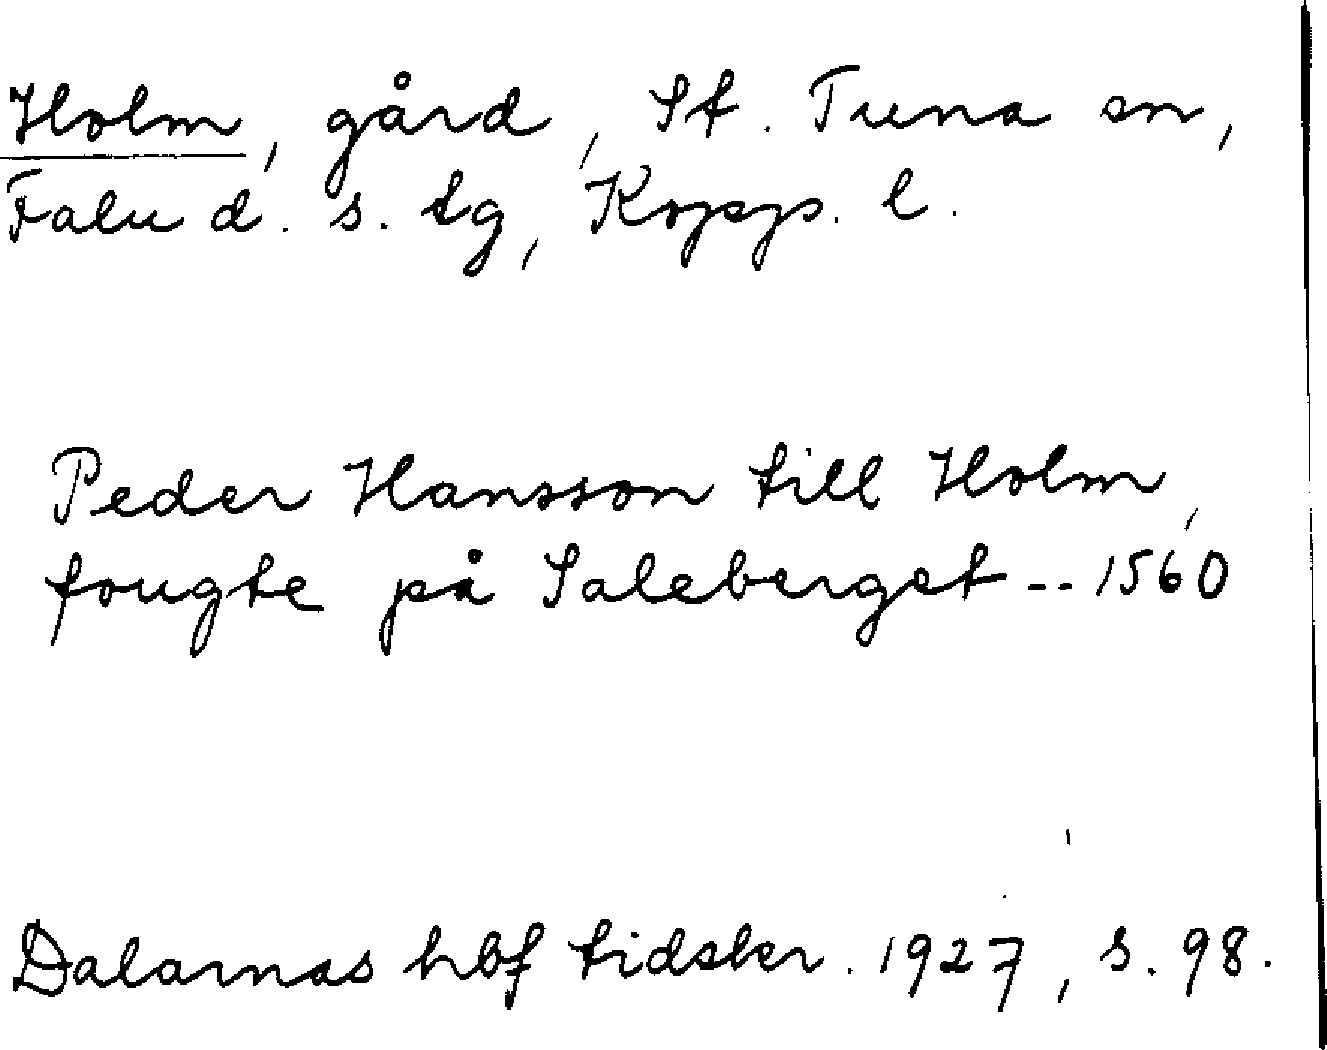 Holm, gård, St. Tuna sn,
Falu d. s. tg, Kopp. l.
Peder Hansson till Holm,
fougte på Saleberget -- 1560
Dalarnas hbf tidskr. 1927, s. 98.